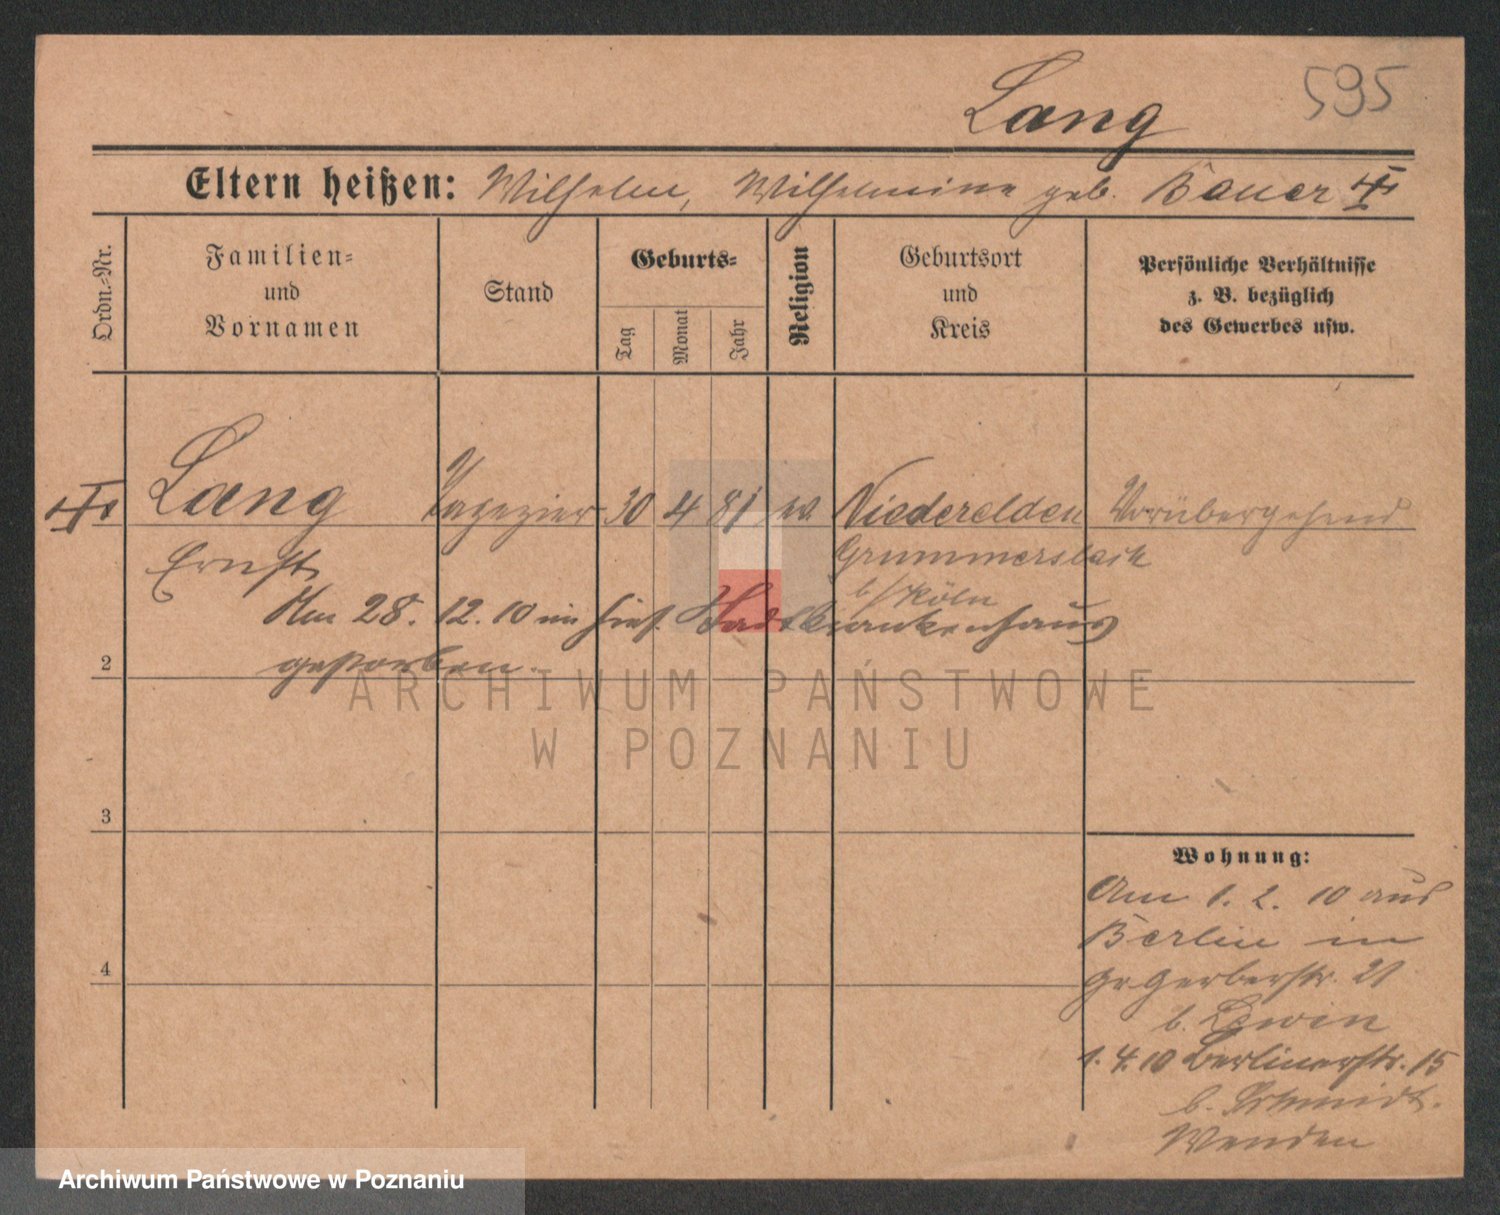 Lang
595
Eltern heißen: Wilhelm, Wilhelmine geb. Bauer
Ordn.-Nr.
Familien-
und
Vornamen
Stand
Geburts-
Tag
Monat
Jahr
Religion
Geburtsort
und
Kreis
Persönliche Verhältnisse
z. B. bezüglich
des Gewerbes usw.
Lang
Tapezier
30
4
81
Niederelden
Vorübergehend
Ernst
Gummersbach
b/Köln
Am 28. 12. 10 im hies. Stadtkrankenhaus
gestorben.
2
ARCHIWUM PAŃSTWOWE
W POZNANIU
3
4
Wohnung:
Am 1. 2. 10 aus
Berlin in
Gr Gerberstr. 21
b. Lewin
1. 4. 10 Berlinerstr. 15
b. Schmidt.
Archiwum Państwowe w Poznaniu